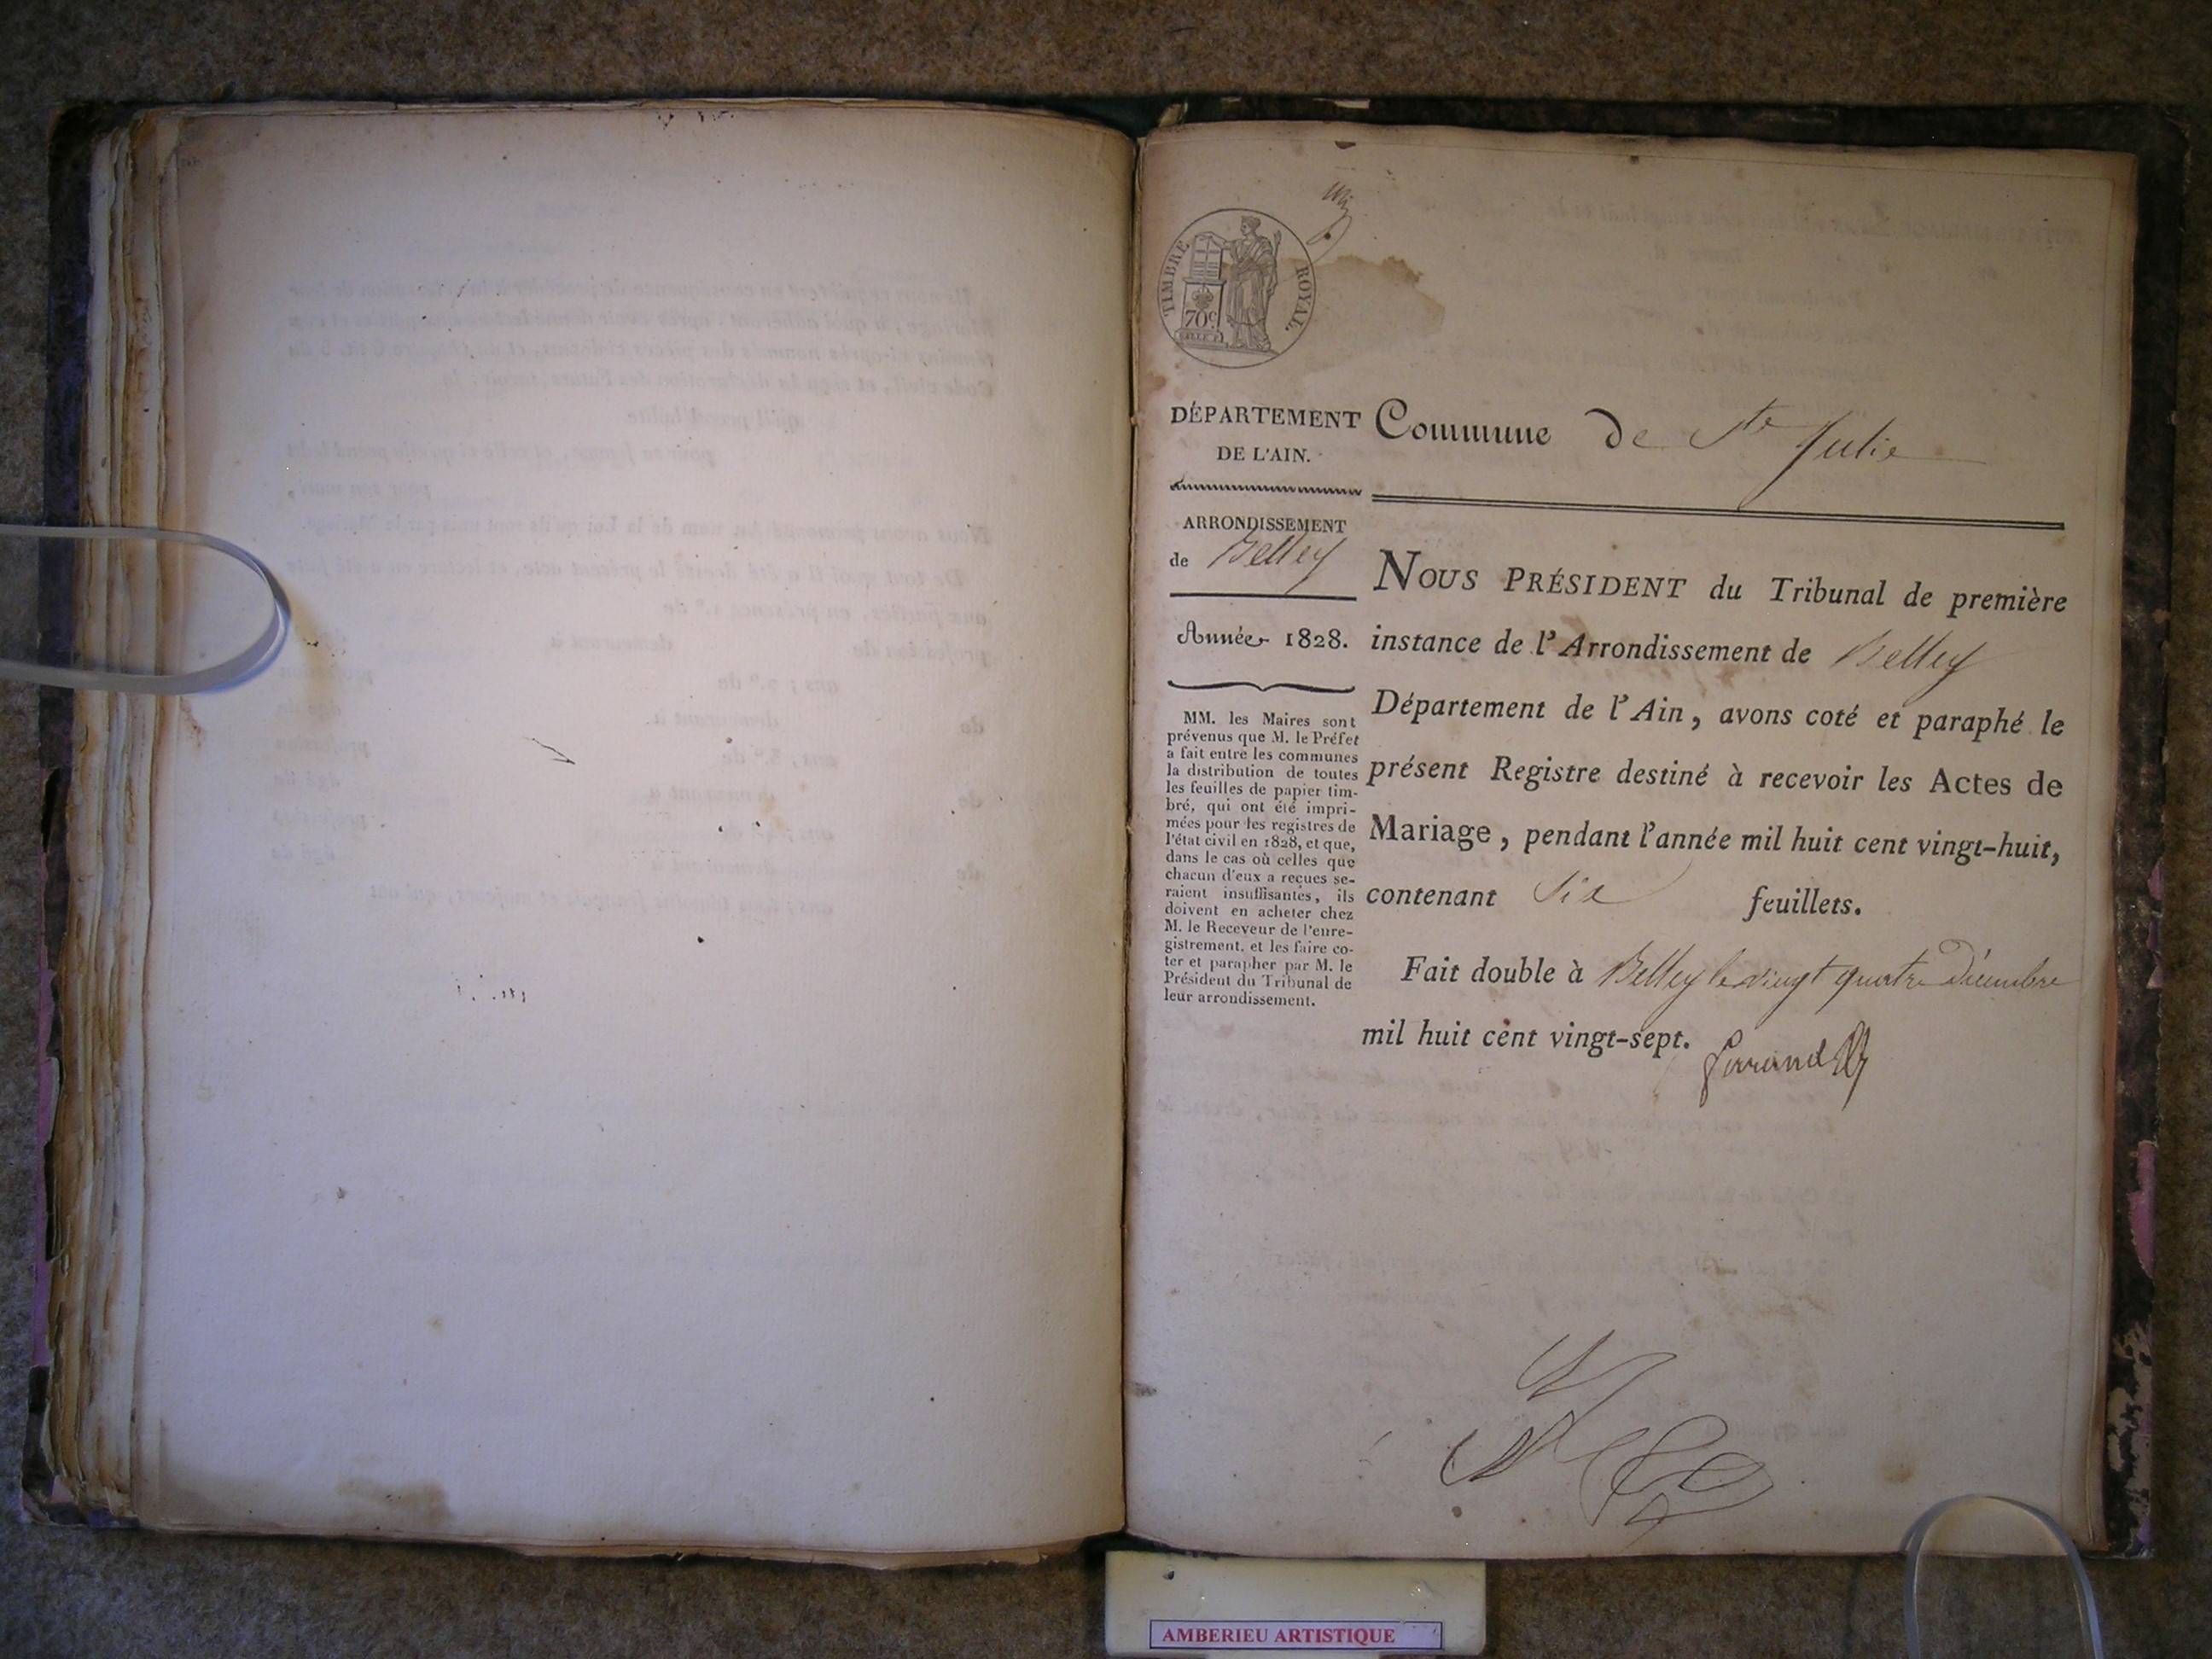 TIMBRE ROYAL
70c
DÉPARTEMENT
DE L'AIN.
ARRONDISSEMENT
de Belley
Année 1828.
MM. les Maires sont
prévenus que M. le Préfet
a fait entre les communes
la distribution de toutes
les feuilles de papier tim-
bré, qui ont été impri-
mées pour les registres de
l'état civil en 1828, et que,
dans le cas où celles que
chacun d'eux a reçues se-
raient insuffisantes, ils
doivent en acheter chez
M. le Receveur de l'enre-
gistrement, et les faire co-
ter et parapher par M. le
Président du Tribunal de
leur arrondissement.
Commune de Ste Julie
NOUS PRÉSIDENT du Tribunal de première
instance de l'Arrondissement de Belley
Département de l'Ain, avons coté et paraphé le
présent Registre destiné à recevoir les Actes de
Mariage, pendant l'année mil huit cent vingt-huit,
contenant Six feuillets.
Fait double à Belley le vingt quatre Décembre
mil huit cent vingt-sept.
AMBERIEU ARTISTIQUE